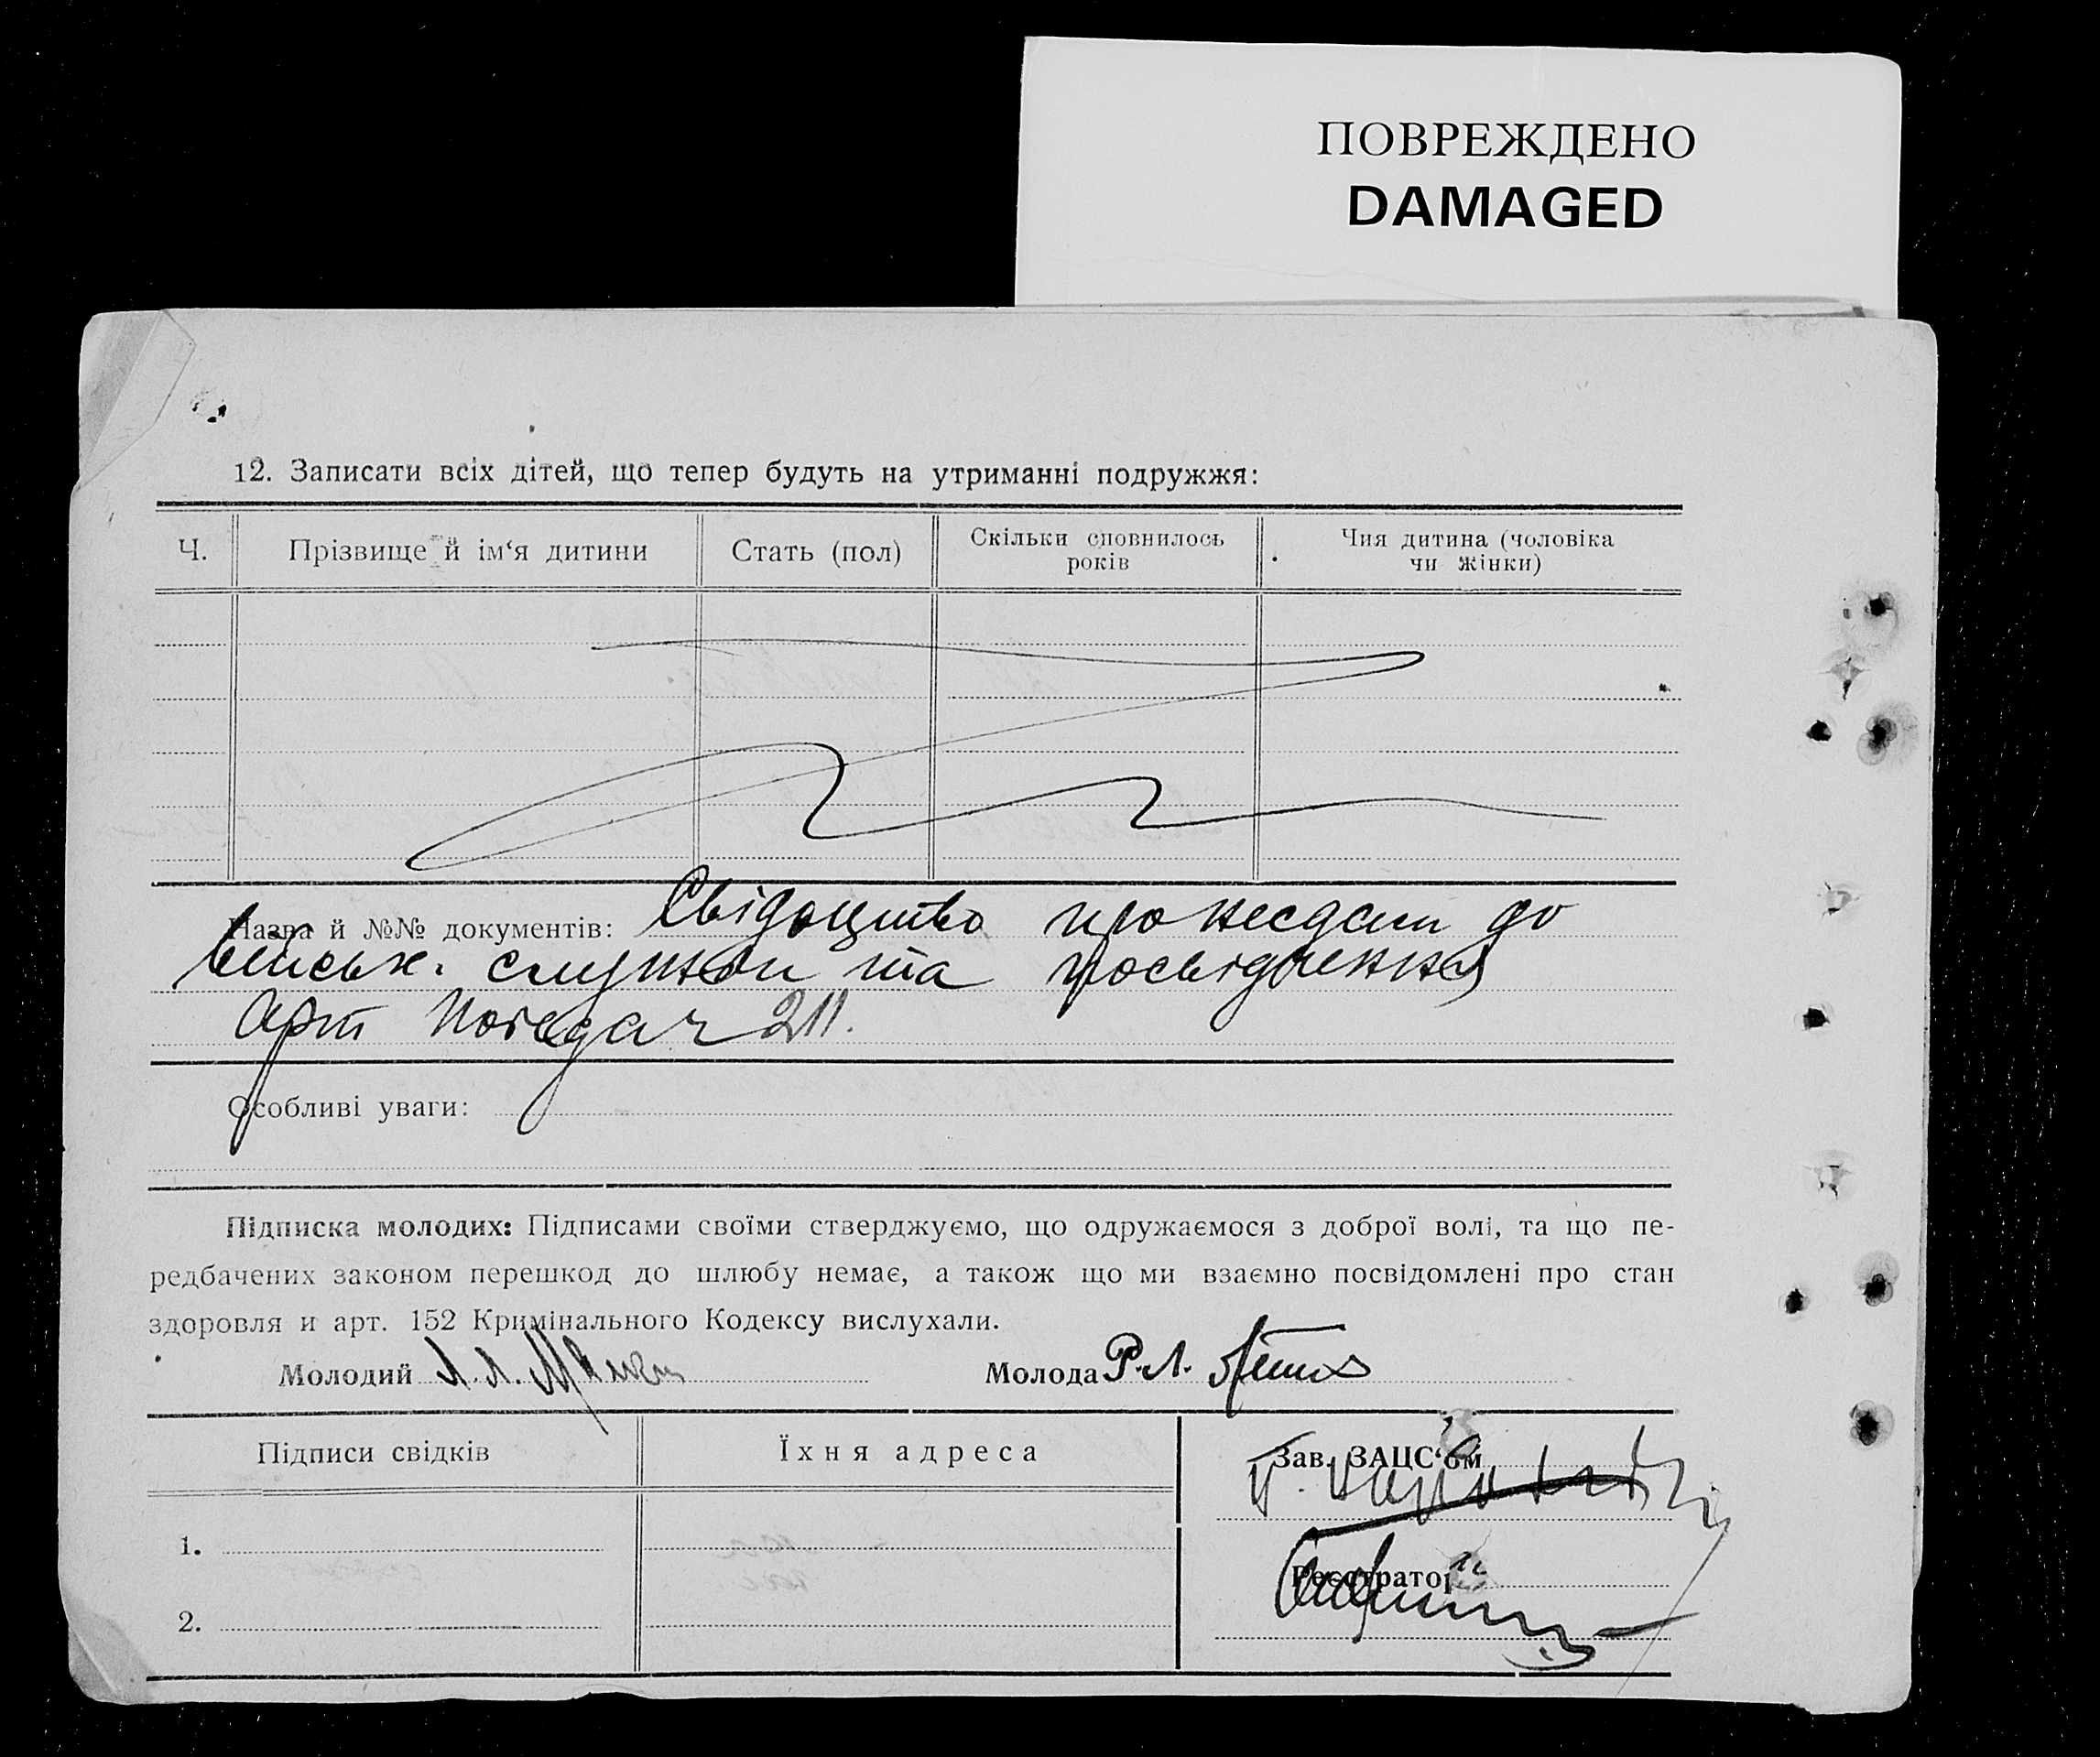 ПОВРЕЖДЕНО
DAMAGED
12. Записати всіх дітей, що тепер будуть на утриманні подружжя:
Ч. Прізвище й ім‘я дитини Стать (пол) Скільки сповнилось років Чия дитина (чоловіка чи жінки)
Назва й №№ документів: Свідоцтво про до
військ. служби та посвідчення
арт 211.
Особливі уваги:
Підписка молодих: Підписами своїми стверджуємо, що одружаємося з доброї волі, та що пе-
редбачених законом перешкод до шлюбу немає, а також що ми взаємно посвідомлені про стан
здоровля и арт. 152 Кримінального Кодексу вислухали.
Молодий Л. Л. Молода Р. Л.
Підписи свідків Їхня адреса Зав. ЗАЦС‘ом
1. Реєстратор
2.